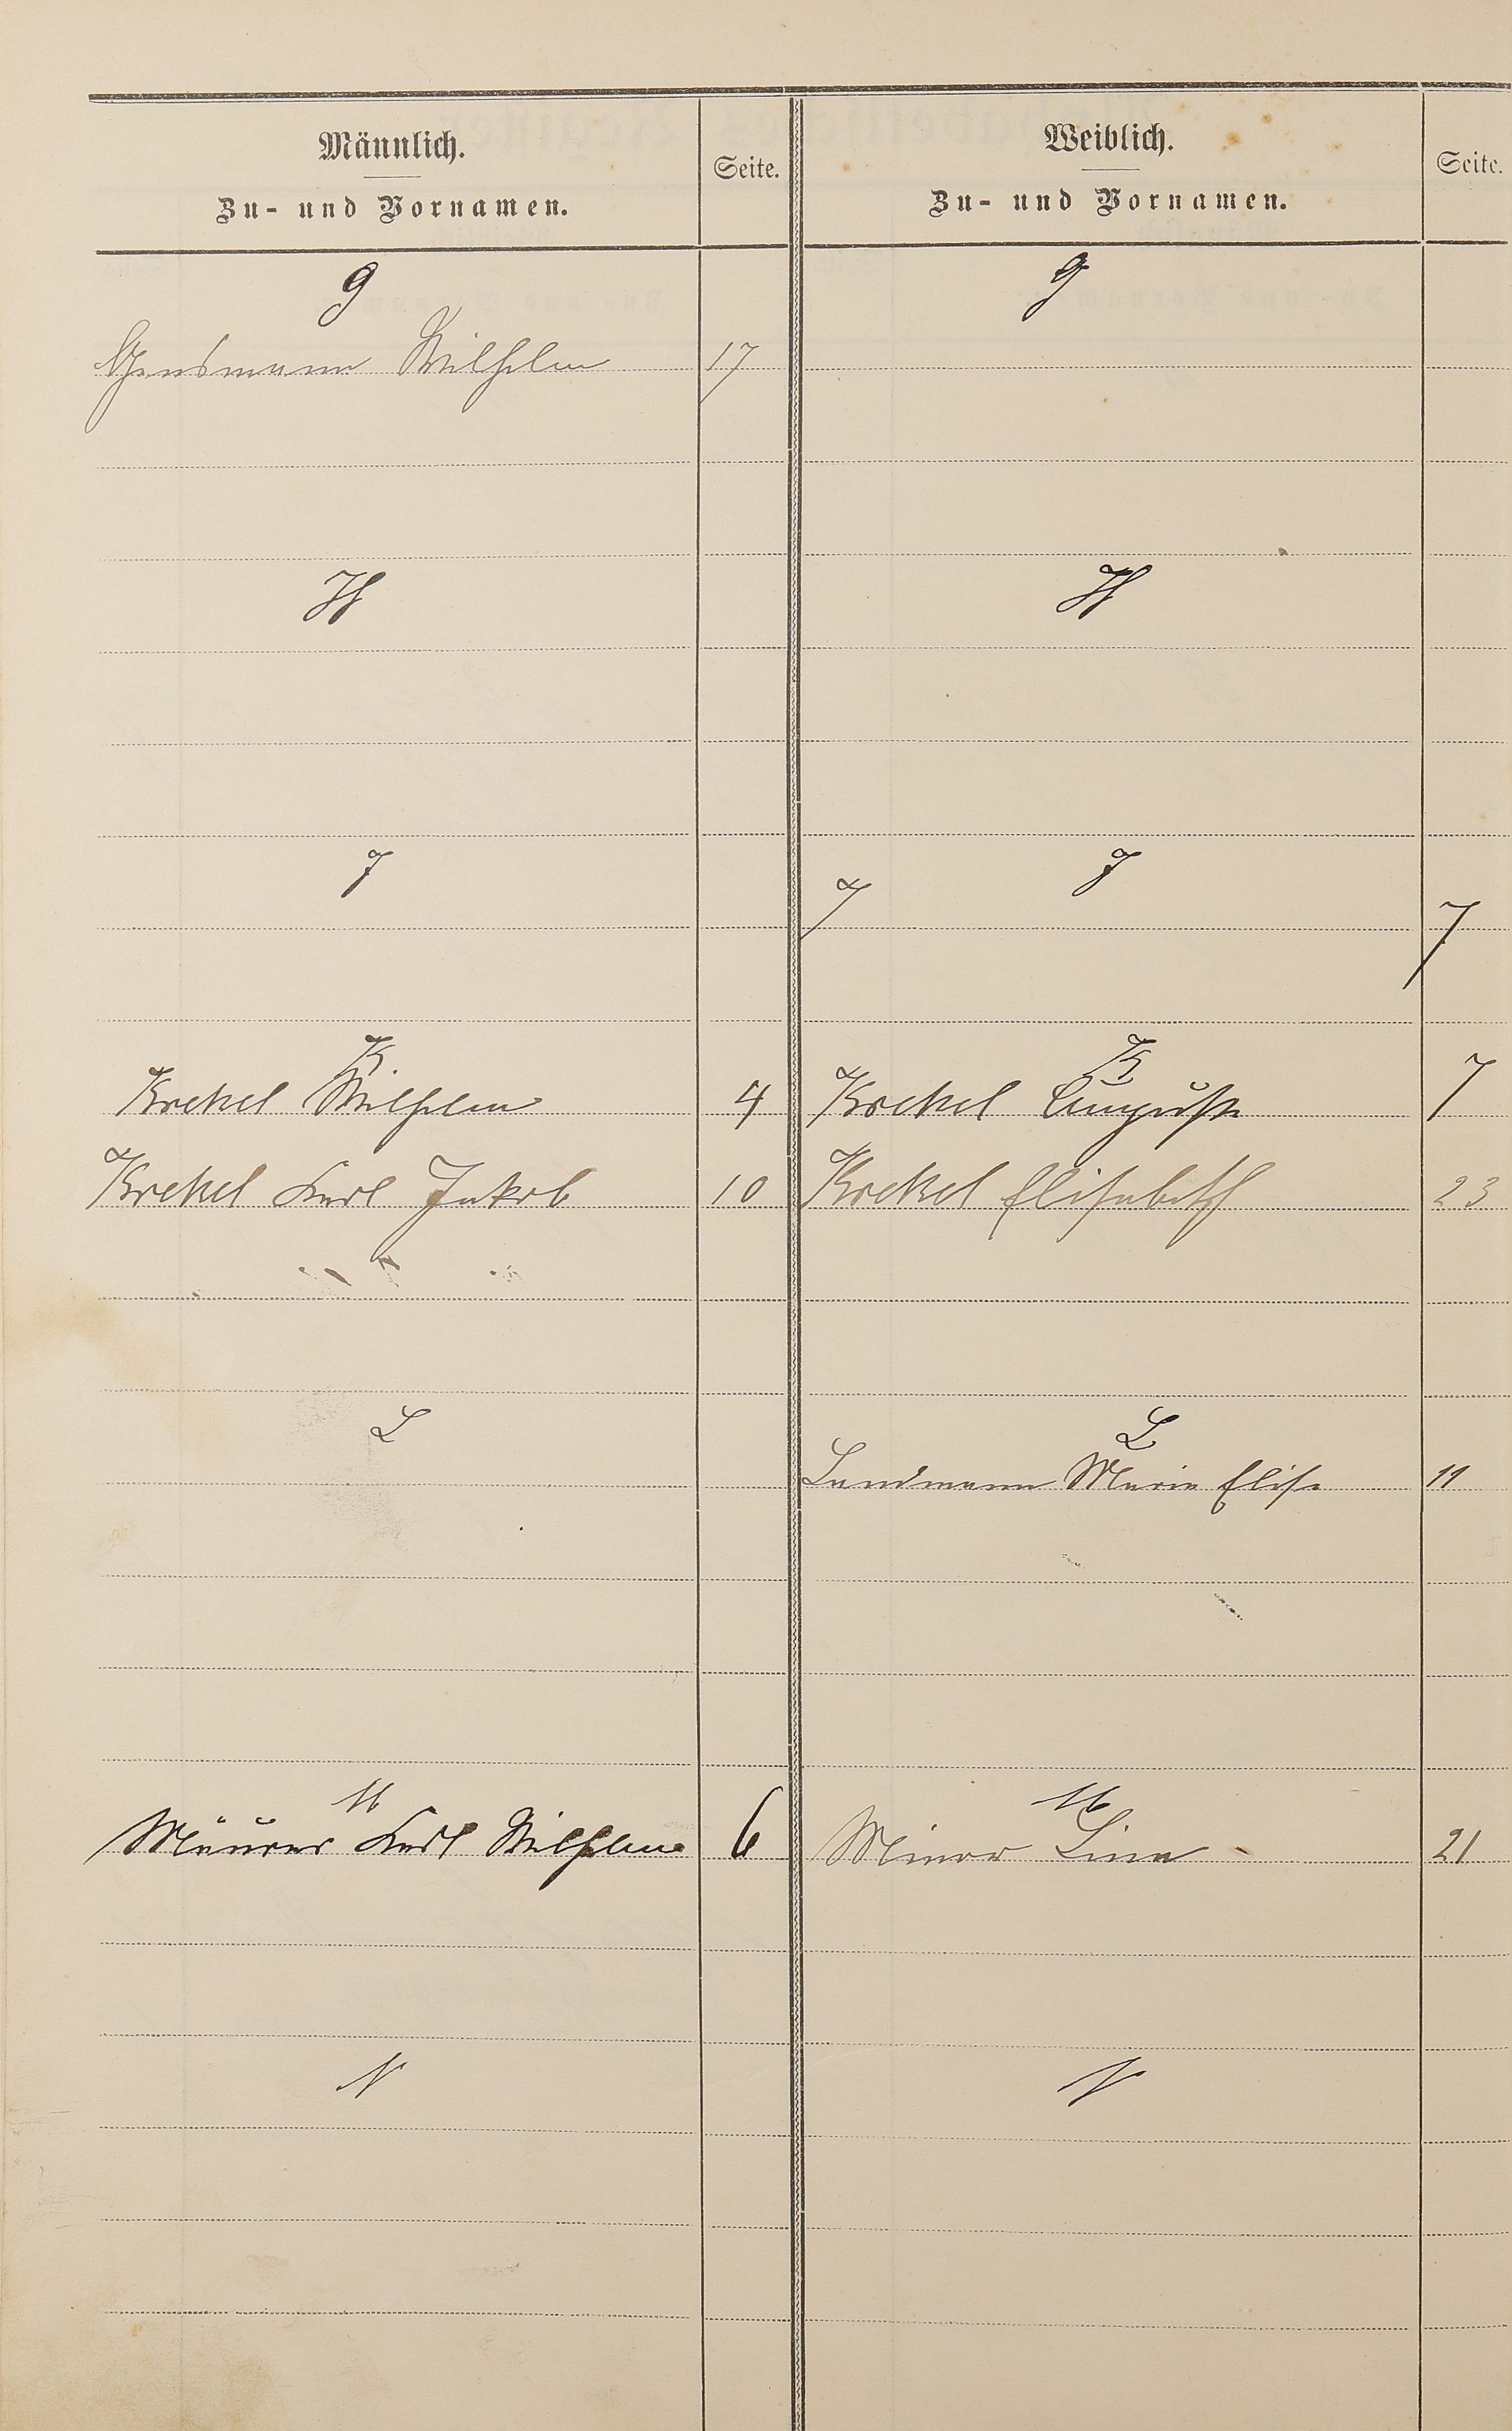 Männlich.
Zu- und Vornamen.
Seite.
Weiblich.
Zu- und Vornamen.
Seite.
G
G
Gensmann Wilhelm 17
H
H
J
J
7
K
K
Krekel Wilhelm 4
Krekel Auguste 7
Krekel Karl Jakob 10
Krekel Elisabeth 23
L
L
Landmann Marie Elise 11
M
M
Mäurer Karl Wilhelm 6
Minor Lina 21
N
N